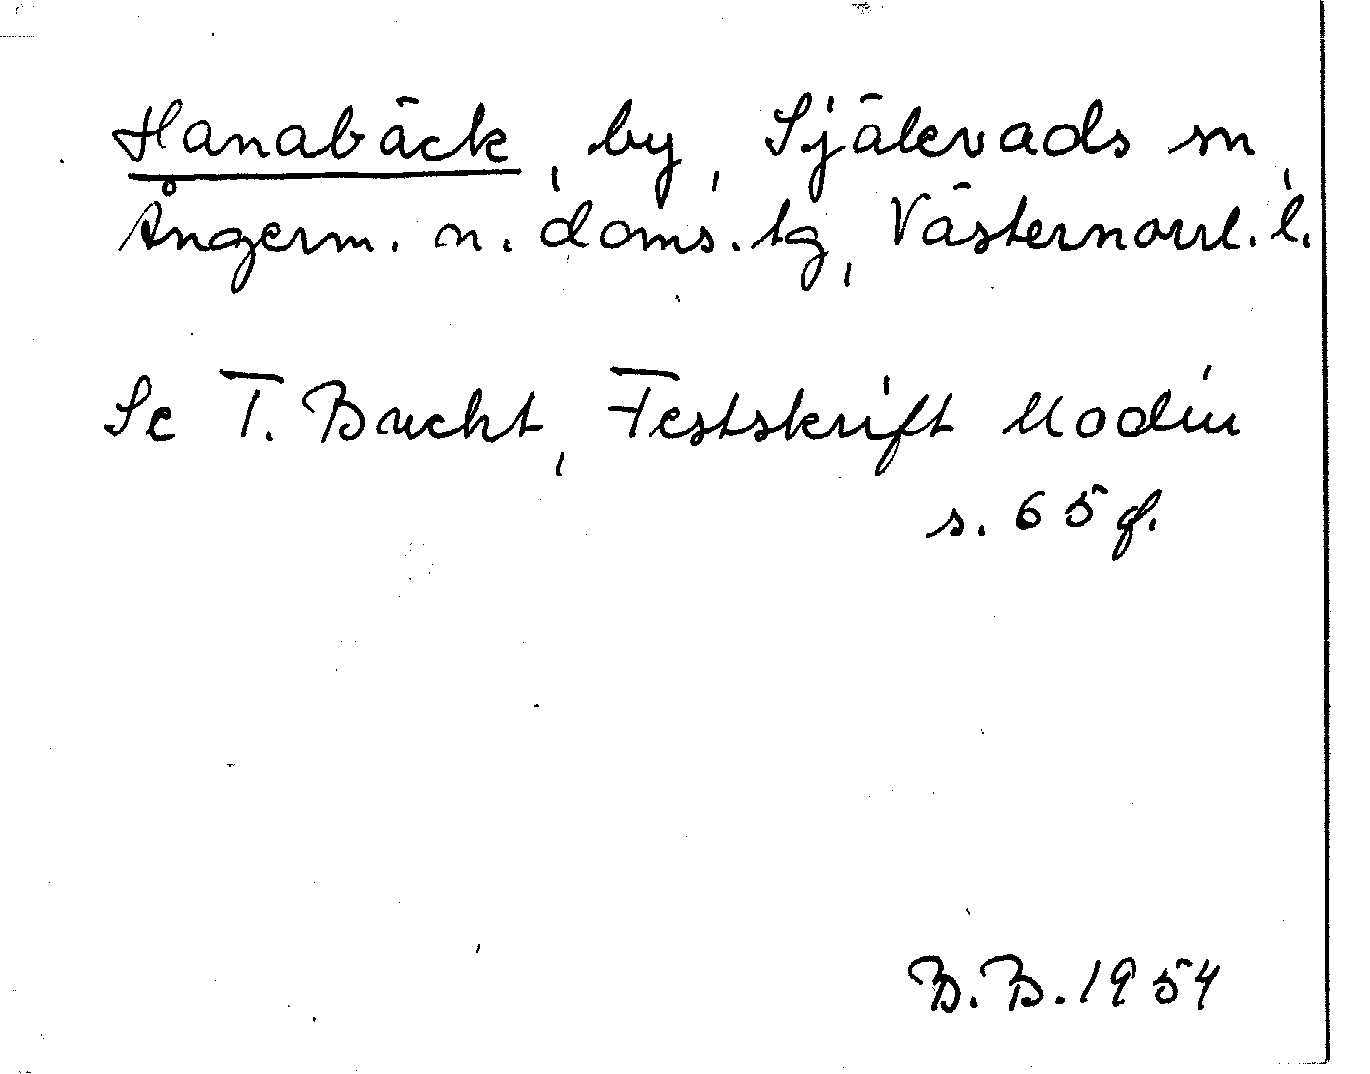 Hanabäck, by, Själevads sn,
Ångerm. n. doms. tg, Västernorrl. l.
Se T. Bucht, Festskrift Modin
s. 65 f.
B. B. 1954